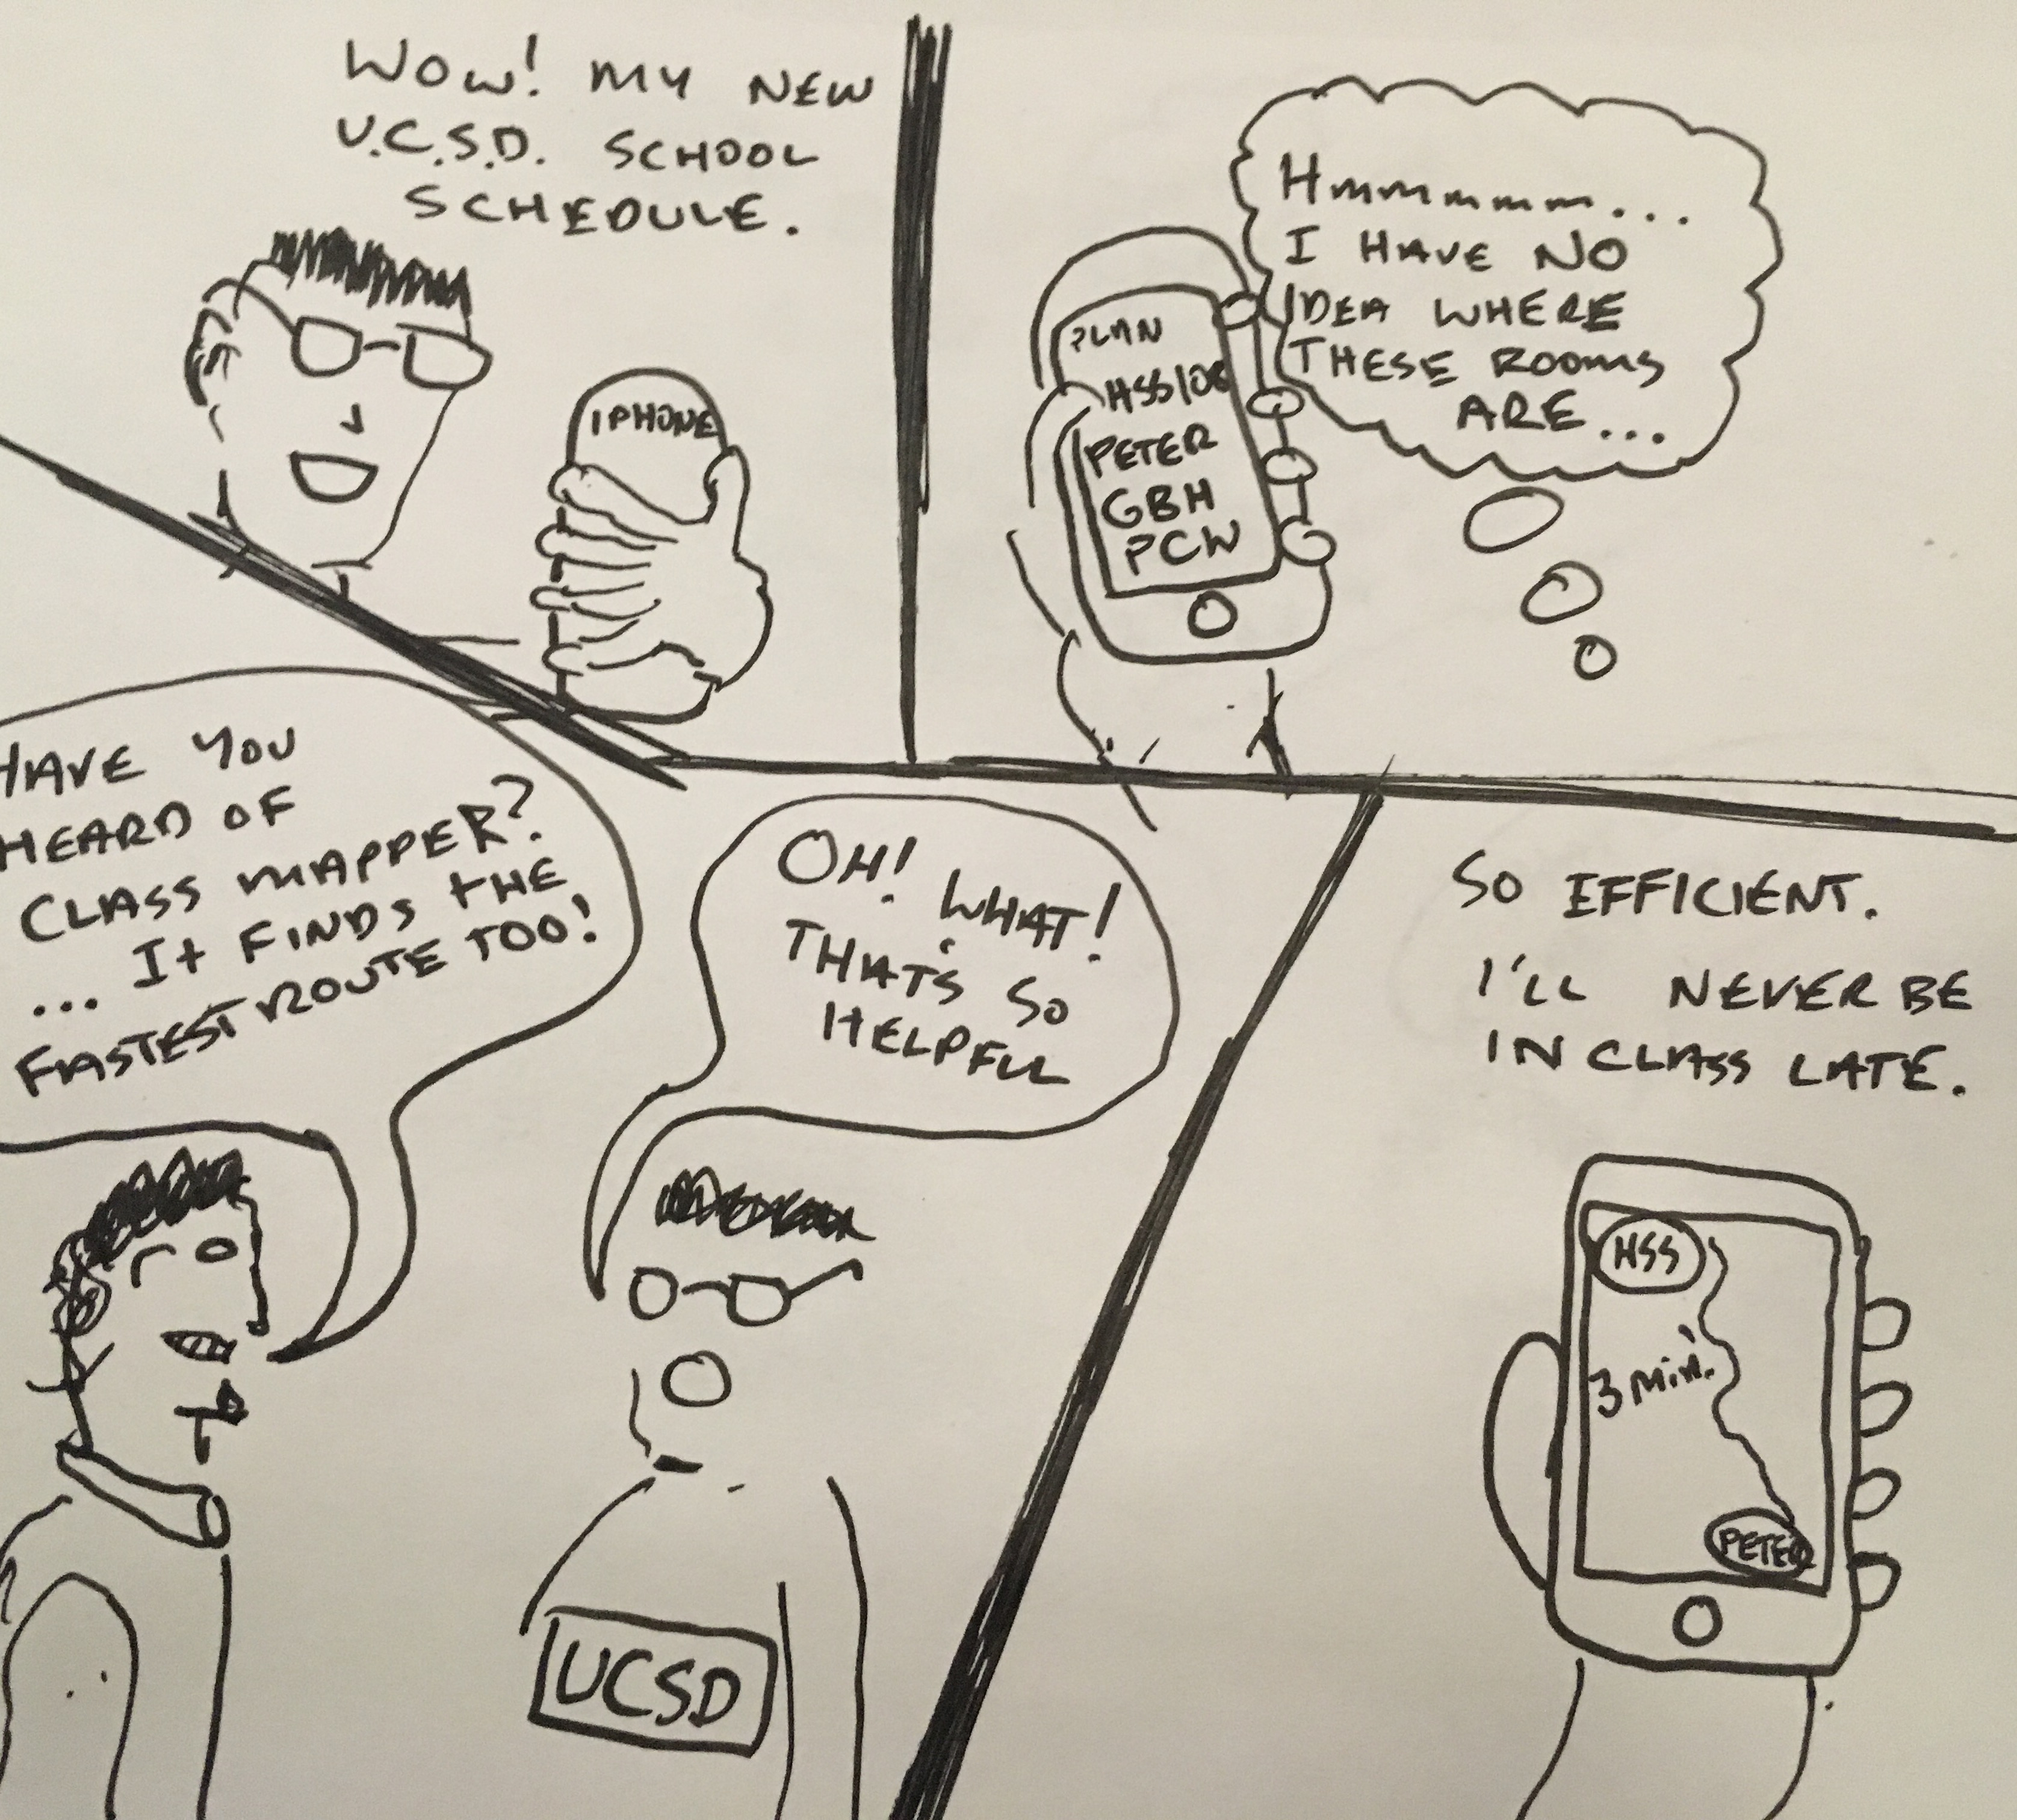 WOW! MY NEW
U.C.S.D. SCHOOL
SCHEDULE.
IPHONE
Hmmmmmm...
I HAVE NO
IDEA WHERE
THESE ROOMS
ARE...
PLAN
HSS/08
PETER
GBH
PCW
HAVE YOU
HEARD OF
CLASS MAPPER?
... It FINDS tHE
FASTEST ROUTE TOO!
OH! WHAT!
THAT'S SO
HELPFUL
UCSD
SO EFFICIENT.
I'LL NEVER BE
IN CLASS LATE.
HSS
3 Min.
PETER